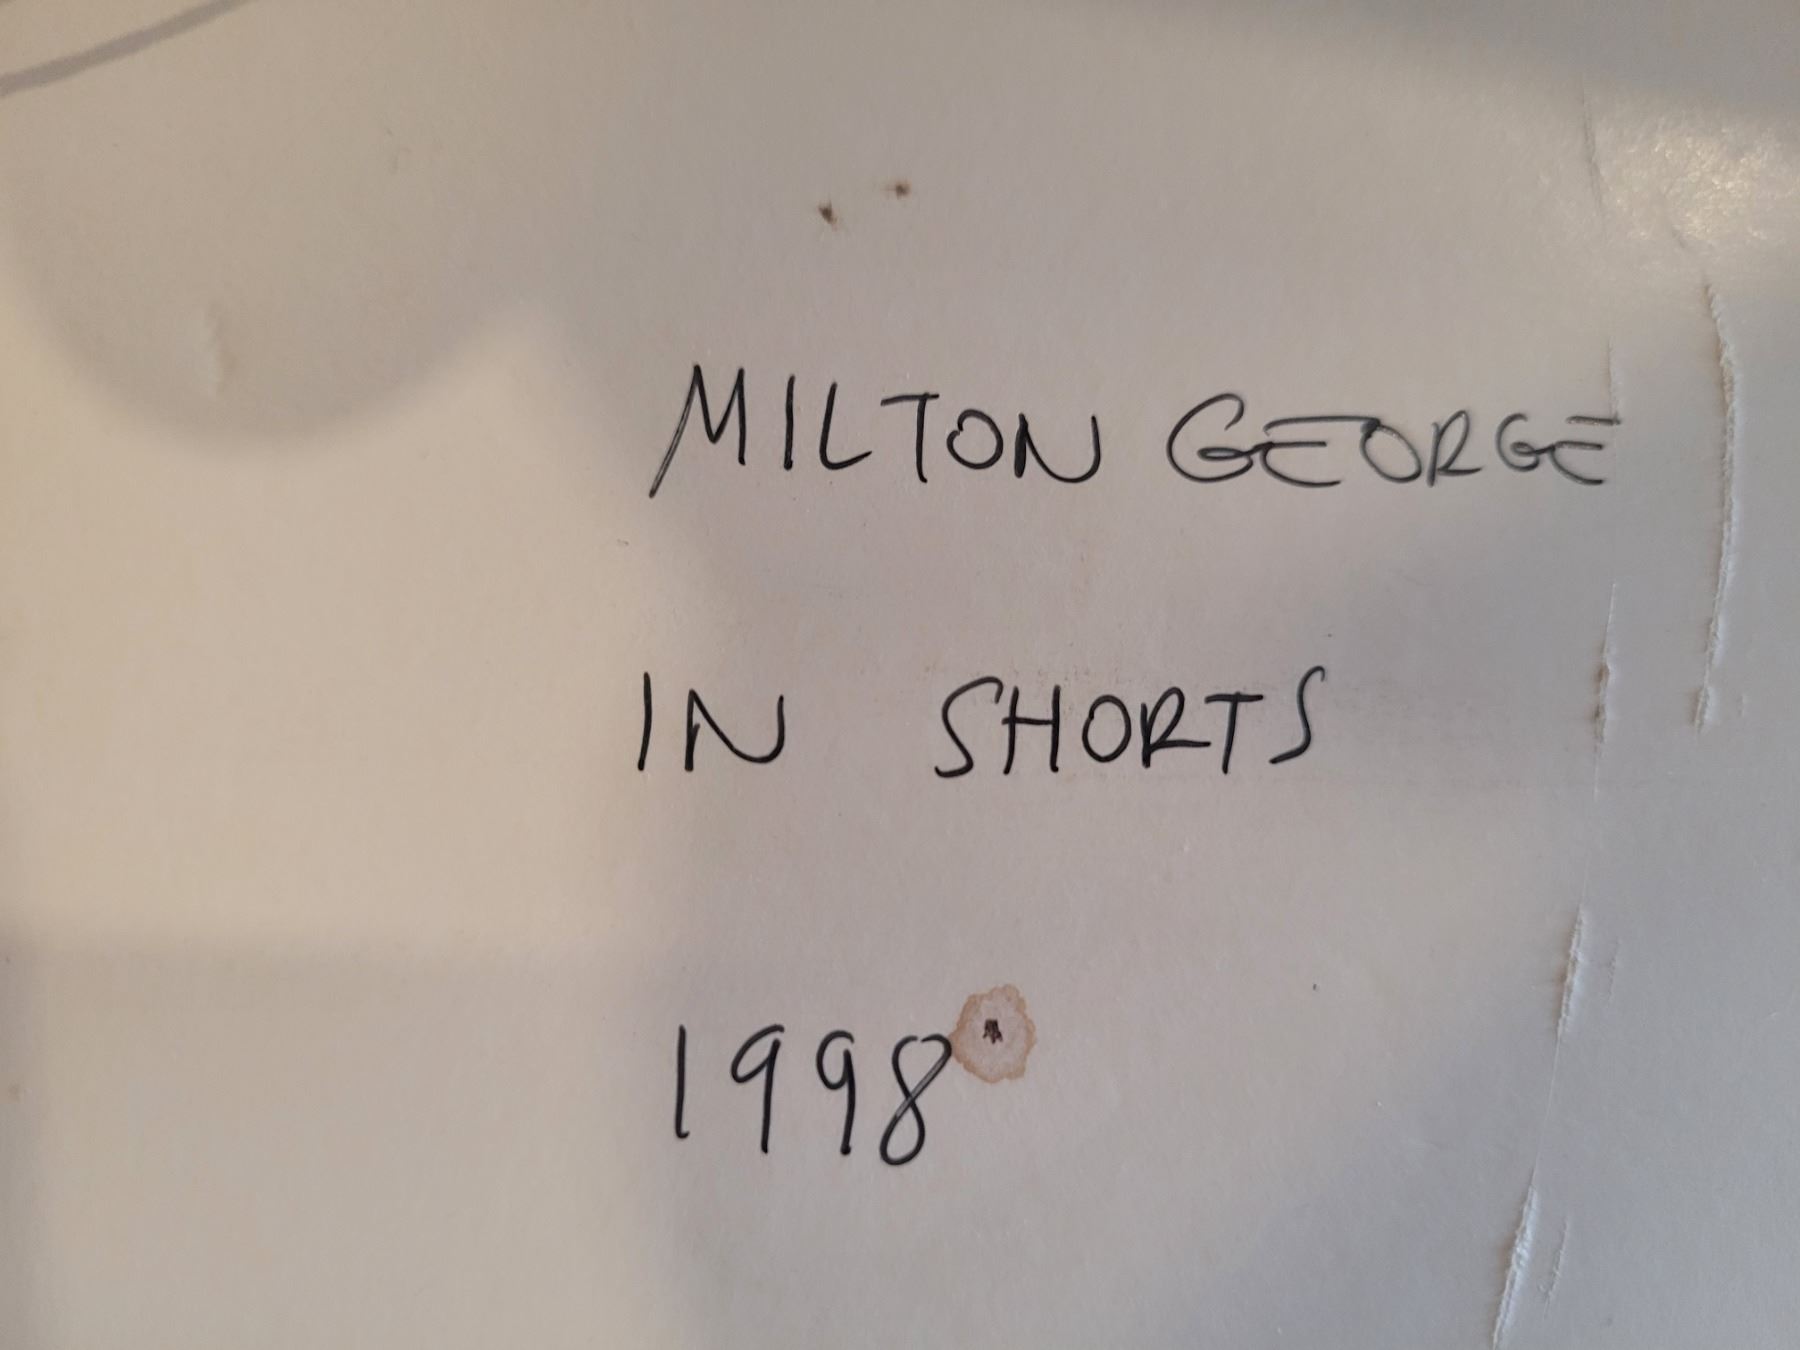 MILTON GEORGE
IN SHORTS
1998